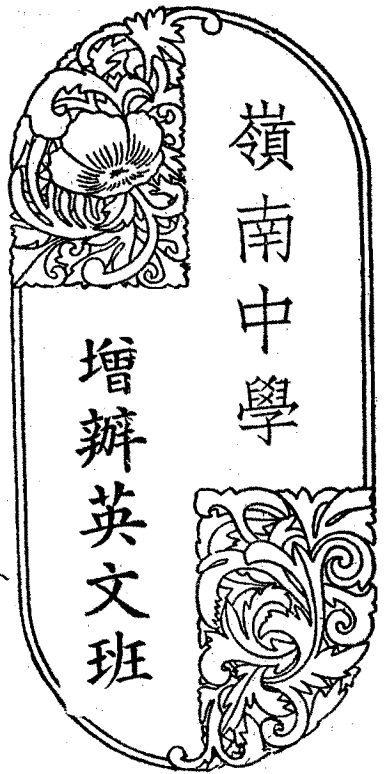 嶺南中學
增辦英文班